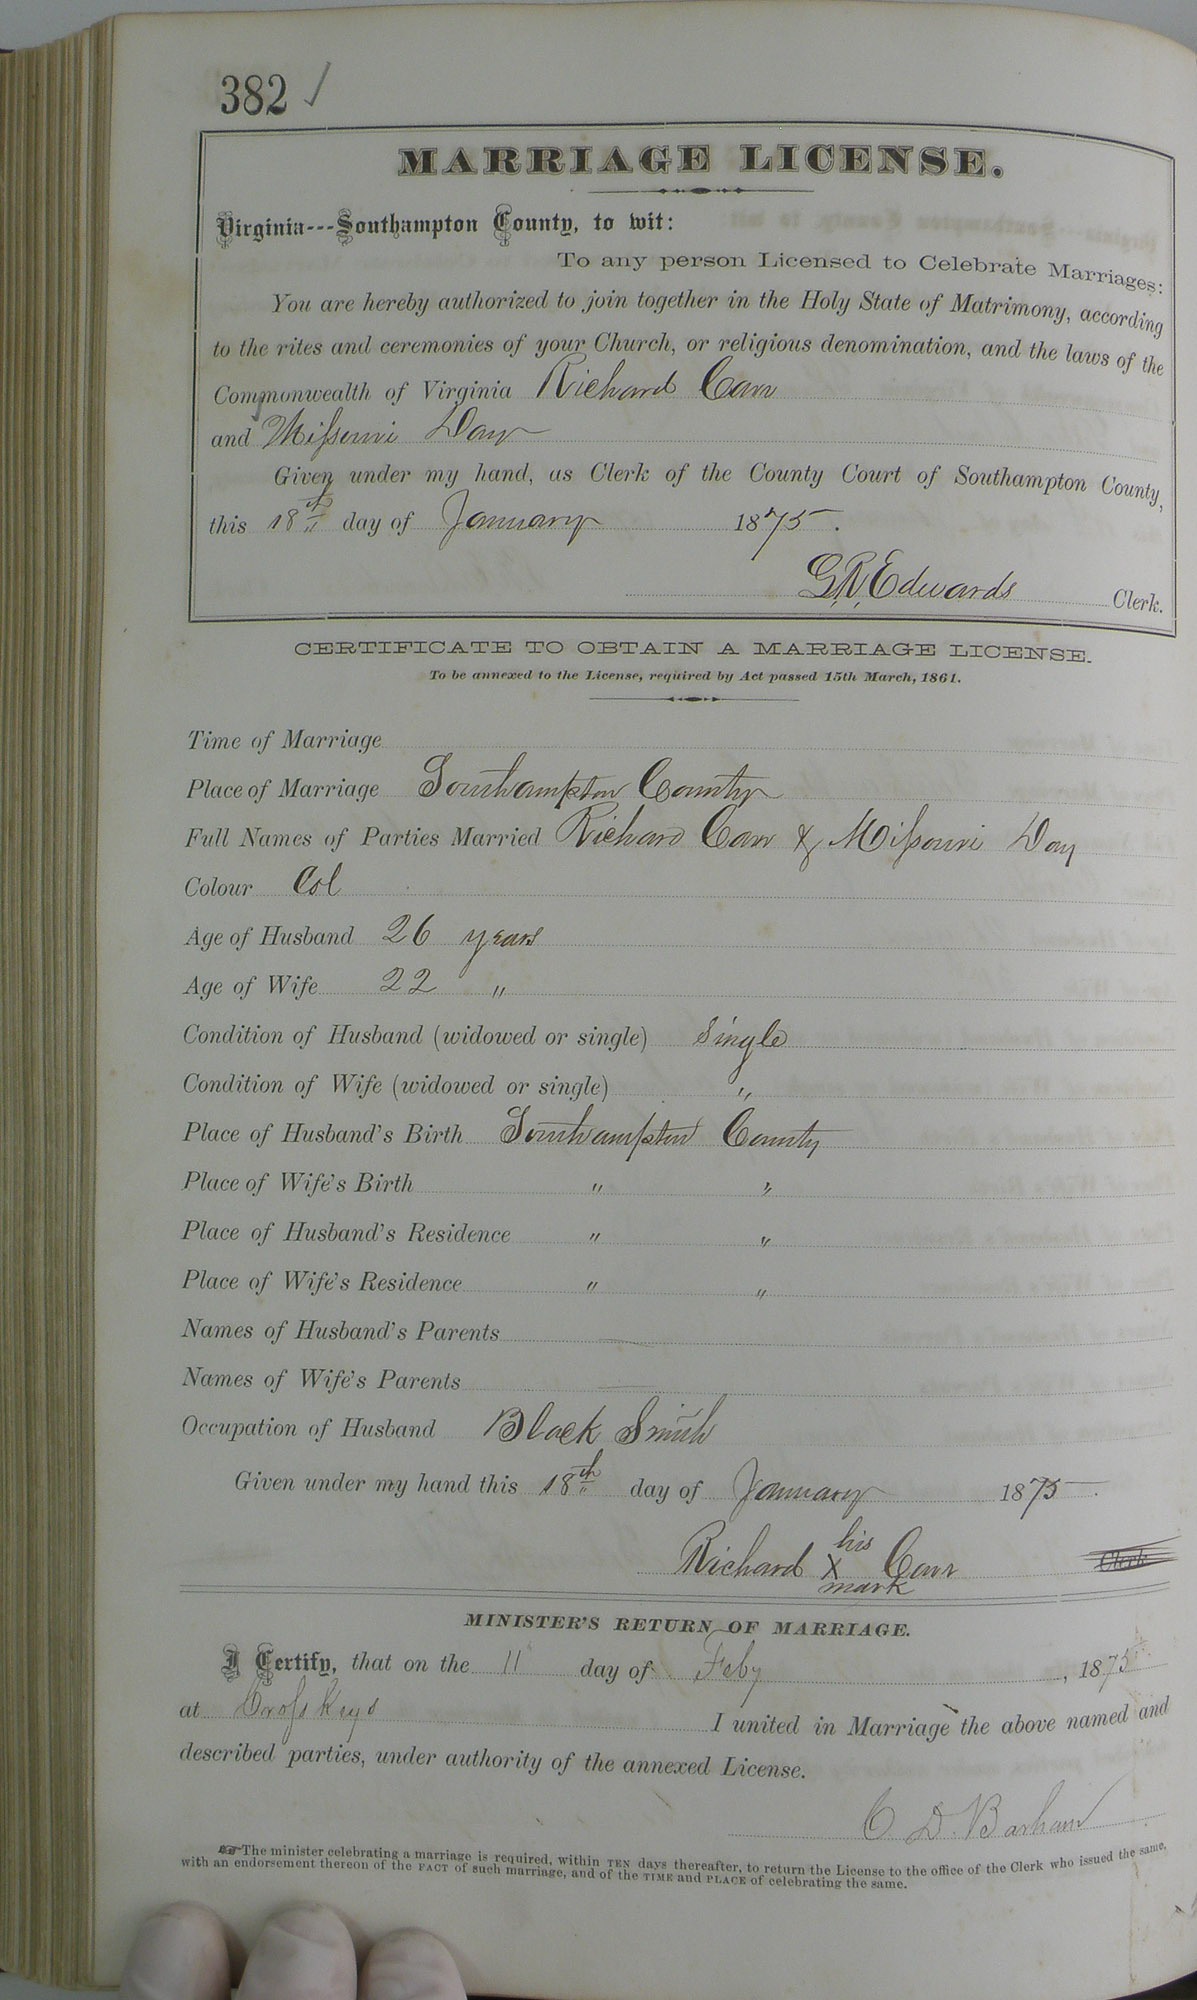 382 ✓
MARRIAGE LICENSE.
Virginia---Southampton County, to wit:
To any person Licensed to Celebrate Marriages:
You are hereby authorized to join together in the Holy State of Matrimony, according
to the rites and ceremonies of your Church, or religious denomination, and the laws of the
Commonwealth of Virginia Richard Carr
and Missouri Day
Given under my hand, as Clerk of the County Court of Southampton County,
this 18th day of January 1875.
G.R. Edwards Clerk.
CERTIFICATE TO OBTAIN A MARRIAGE LICENSE.
To be annexed to the License, required by Act passed 15th March, 1861.
Time of Marriage
Place of Marriage Southampton County
Full Names of Parties Married Richard Carr & Missouri Day
Colour Col
Age of Husband 26 years
Age of Wife 22 "
Condition of Husband (widowed or single) Single
Condition of Wife (widowed or single) "
Place of Husband's Birth Southampton County
Place of Wife's Birth " "
Place of Husband's Residence " "
Place of Wife's Residence " "
Names of Husband's Parents —
Names of Wife's Parents —
Occupation of Husband Black Smith
Given under my hand this 18th day of January 1875.
his
Richard X Carr Clerk
mark
MINISTER'S RETURN OF MARRIAGE.
I Certify, that on the 11 day of Feby, 1875
at Cross Keys I united in Marriage the above named and
described parties, under authority of the annexed License.
C D. Barham
☞The minister celebrating a marriage is required, within TEN days thereafter, to return the License to the office of the Clerk who issued the same,
with an endorsement thereon of the FACT of such marriage, and of the TIME and PLACE of celebrating the same.